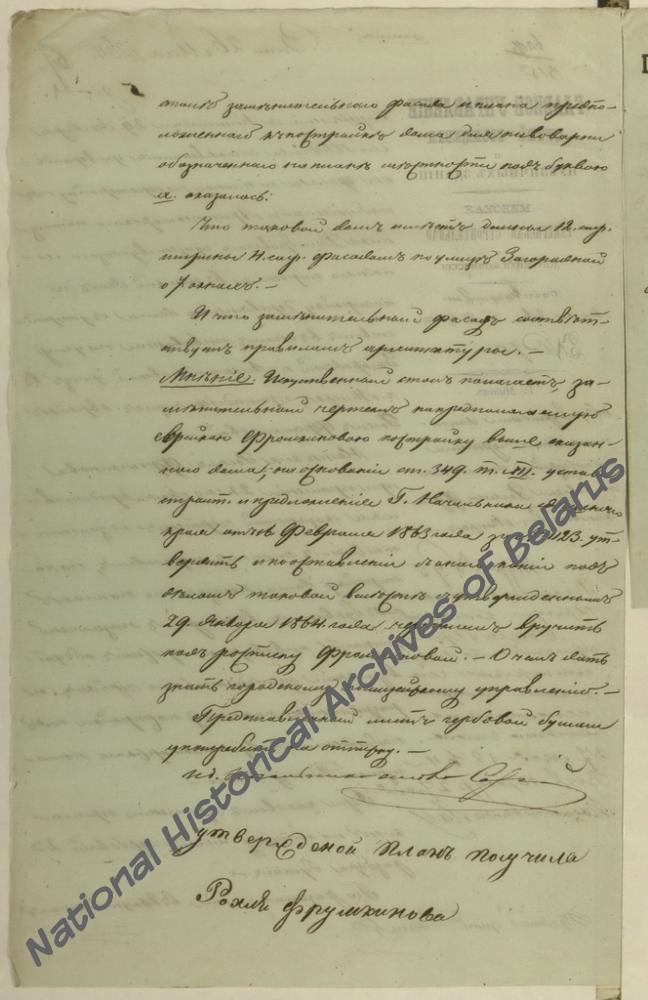 заменительнаго фасада и плана предпо-
ложеннаго къ постройке дома для пивоварни
обозначеннаго на плане местности подъ буквою
а. оказалось:
Что таковой домъ иметь длины 12. саж.
ширины 4. саж. фасадомъ по улице Загородной
о 7 окнахъ. –
И что заменительный фасадъ соответ-
ствуетъ правиламъ архитектуры. –
Мнѣніе. Искуственный столъ полагаетъ, за-
менительный чертежъ на предполагаемую
еврейкою Фрумкиновою постройку выше сказан-
наго дома, на основаніи ст. 349. т. XII. устав.
строит. и предложенія Г. Начальника
края отъ Февраля 1863 года за № 123. ут-
вердить и по оставленіи копіи подъ
таковой вместе съ утвержденнымъ
29. Января 1864. года чертежемъ вручить
подъ росписку Фрумкиновой. – О чемъ дать
знать городскому полицейскому управленію. –
Представленный листъ гербовой бумаги
употребить на отписку. –
утвержденой планъ получила
Рохля Фрумкинова
National Historical Archives of Belarus